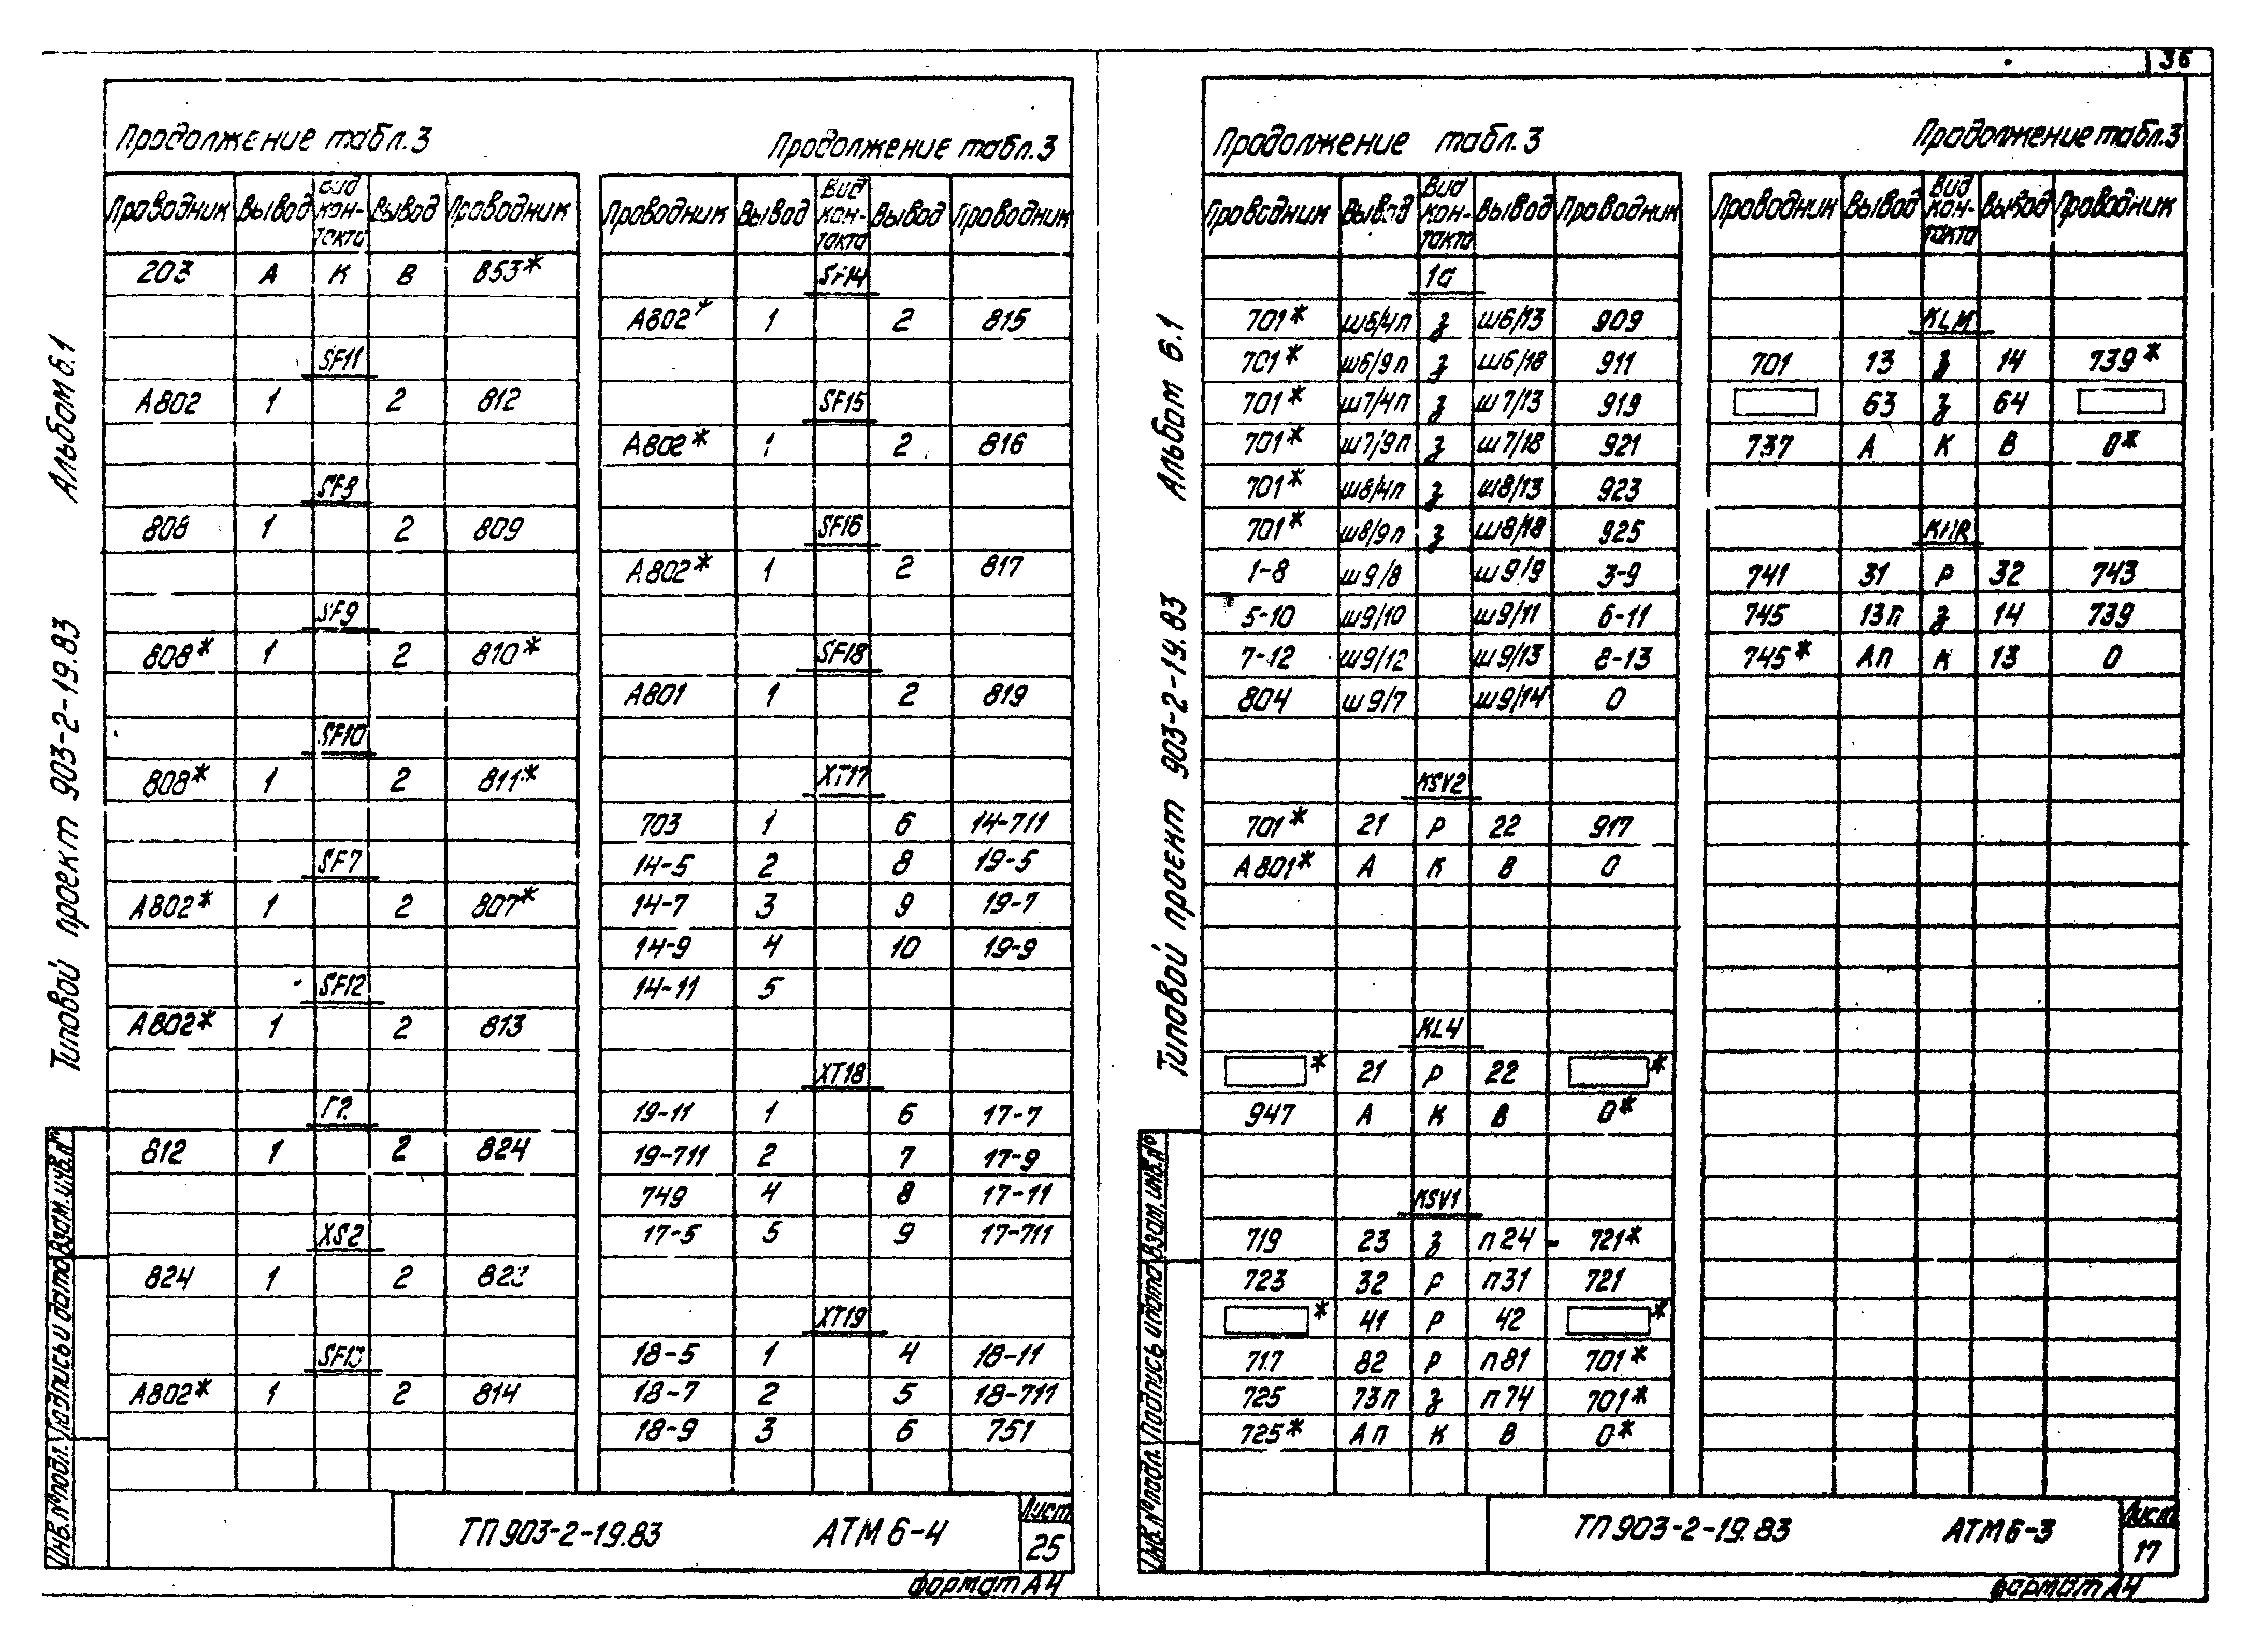 36
Продолжение табл.3
Проводник Вывод Вид кон-такта Вывод Проводник
203 А К В 853*
SF11
А802 1 2 812
SF8
808 1 2 809
SF9
808* 1 2 810*
SF10
808* 1 2 811*
SF7
А802* 1 2 807*
SF12
А802* 1 2 813
812 1 2 824
XS2
824 1 2 823
SF13
А802* 1 2 814
Продолжение табл.3
Проводник Вывод Вид кон-такта Вывод Проводник
SF14
А802* 1 2 815
SF15
А802* 1 2 816
SF16
А802* 1 2 817
SF18
А801 1 2 819
XT17
703 1 6 14-711
14-5 2 8 19-5
14-7 3 9 19-7
14-9 4 10 19-9
14-11 5
XT18
19-11 1 6 17-7
19-711 2 7 17-9
749 4 8 17-11
17-5 5 9 17-711
XT19
18-5 1 4 18-11
18-7 2 5 18-711
18-9 3 6 751
Альбом 6.1
Типовой проект 903-2-19.83
Взам.инв.№
Подпись и дата
Инв.№подл.
ТП 903-2-19.83 АТМ 6-4
Лист
25
формат А4
Продолжение табл.3
Проводник Вывод Вид кон-такта Вывод Проводник
1а
701* ш6/4п з ш6/13 909
701* ш6/9п з ш6/18 911
701* ш7/4п з ш7/13 919
701* ш7/9п з ш7/18 921
701* ш8/4п з ш8/13 923
701* ш8/9п з ш8/18 925
1-8 ш9/8 ш9/9 3-9
5-10 ш9/10 ш9/11 6-11
7-12 ш9/12 ш9/13 8-13
804 ш9/7 ш9/14 0
KSV2
701* 21 Р 22 917
А801* А К В 0
KL4
* 21 Р 22 *
947 А К В 0*
KSV1
719 23 з п24 - 721*
723 32 Р п31 721
* 41 Р 42 *
717 82 Р п81 701*
725 73п з п74 701*
725* Ап К В 0*
Продолжение табл.3
Проводник Вывод Вид кон-такта Вывод Проводник
KLM
701 13 з 14 739*
63 з 64
737 А К В 0*
741 31 Р 32 743
745 13п з 14 739
745* Ап К 13 0
Альбом 6.1
Типовой проект 903-2-19.83
Взам.инв.№
Подпись и дата
Инв.№подл.
ТП 903-2-19.83 АТМ6-3
Лист
17
формат А4